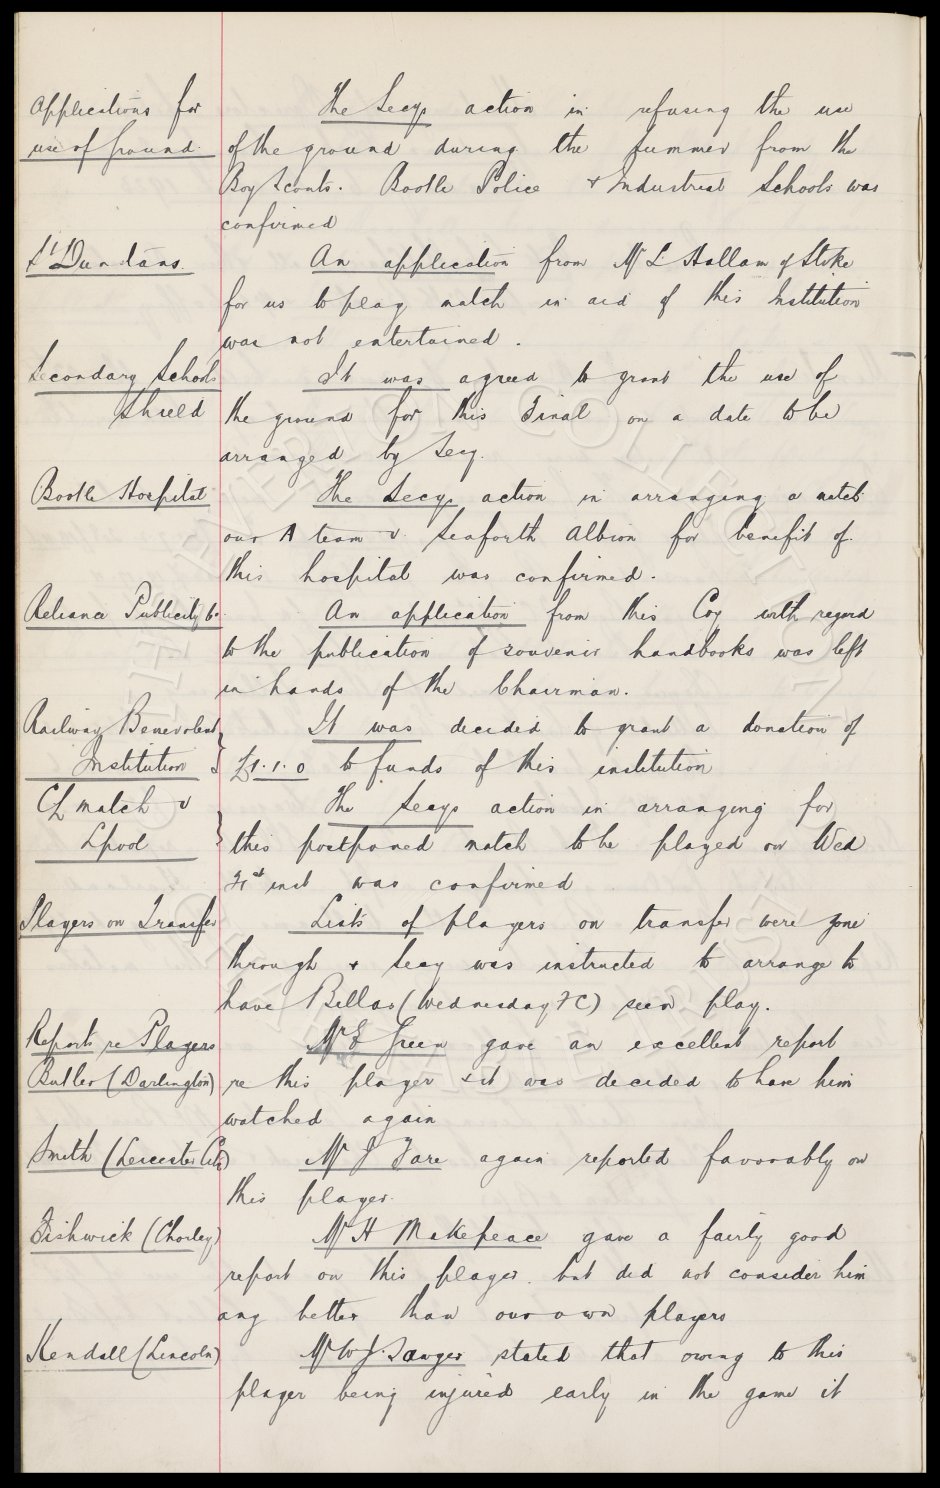 Applications for
use of ground.
The Secys action in refusing the use
of the ground during the summer from the
Boy Scouts. Bootle Police + Industrial Schools was
confirmed
St Dunstans.
An application from Mr L Hallam of Stoke
for us to play match in aid of this Institution
was not entertained.
Secondary Schools
Shield
It was agreed to grant the use of
the ground for this Final on a date to be
arranged by Secy.
Bootle Hospital
The Secys action in arranging a match
our A team v. Seaforth Albion for benefit of
this hospital was confirmed.
Reliance Publicity Co.
An application from this Coy with regard
to the publication of souvenir handbooks was left
in hands of the Chairman.
Railway Benevolent
Institution
It was decided to grant a donation of
£1.1.0 to funds of this institution
CL match v
Lpool
The Secys action in arranging for
this postponed match to be played on Wed
inst was confirmed
Players on Transfer
Lists of players on transfer were gone
through + Secy was instructed to arrange to
have Bellas (Wednesday FC) seen play.
Reports re Players
Butler (Darlington)
Mr E Green gave an excellent report
re this player + it was decided to have him
watched again
Smith (Leicester City)
Mr J Fare again reported favorably on
this player.
Fishwick (Chorley)
Mr H Makepeace gave a fairly good
report on this player, but did not consider him
any better than our own players
Kendall (Lincoln)
Mr W J. Sawyer stated that owing to this
player being injured early in the game it